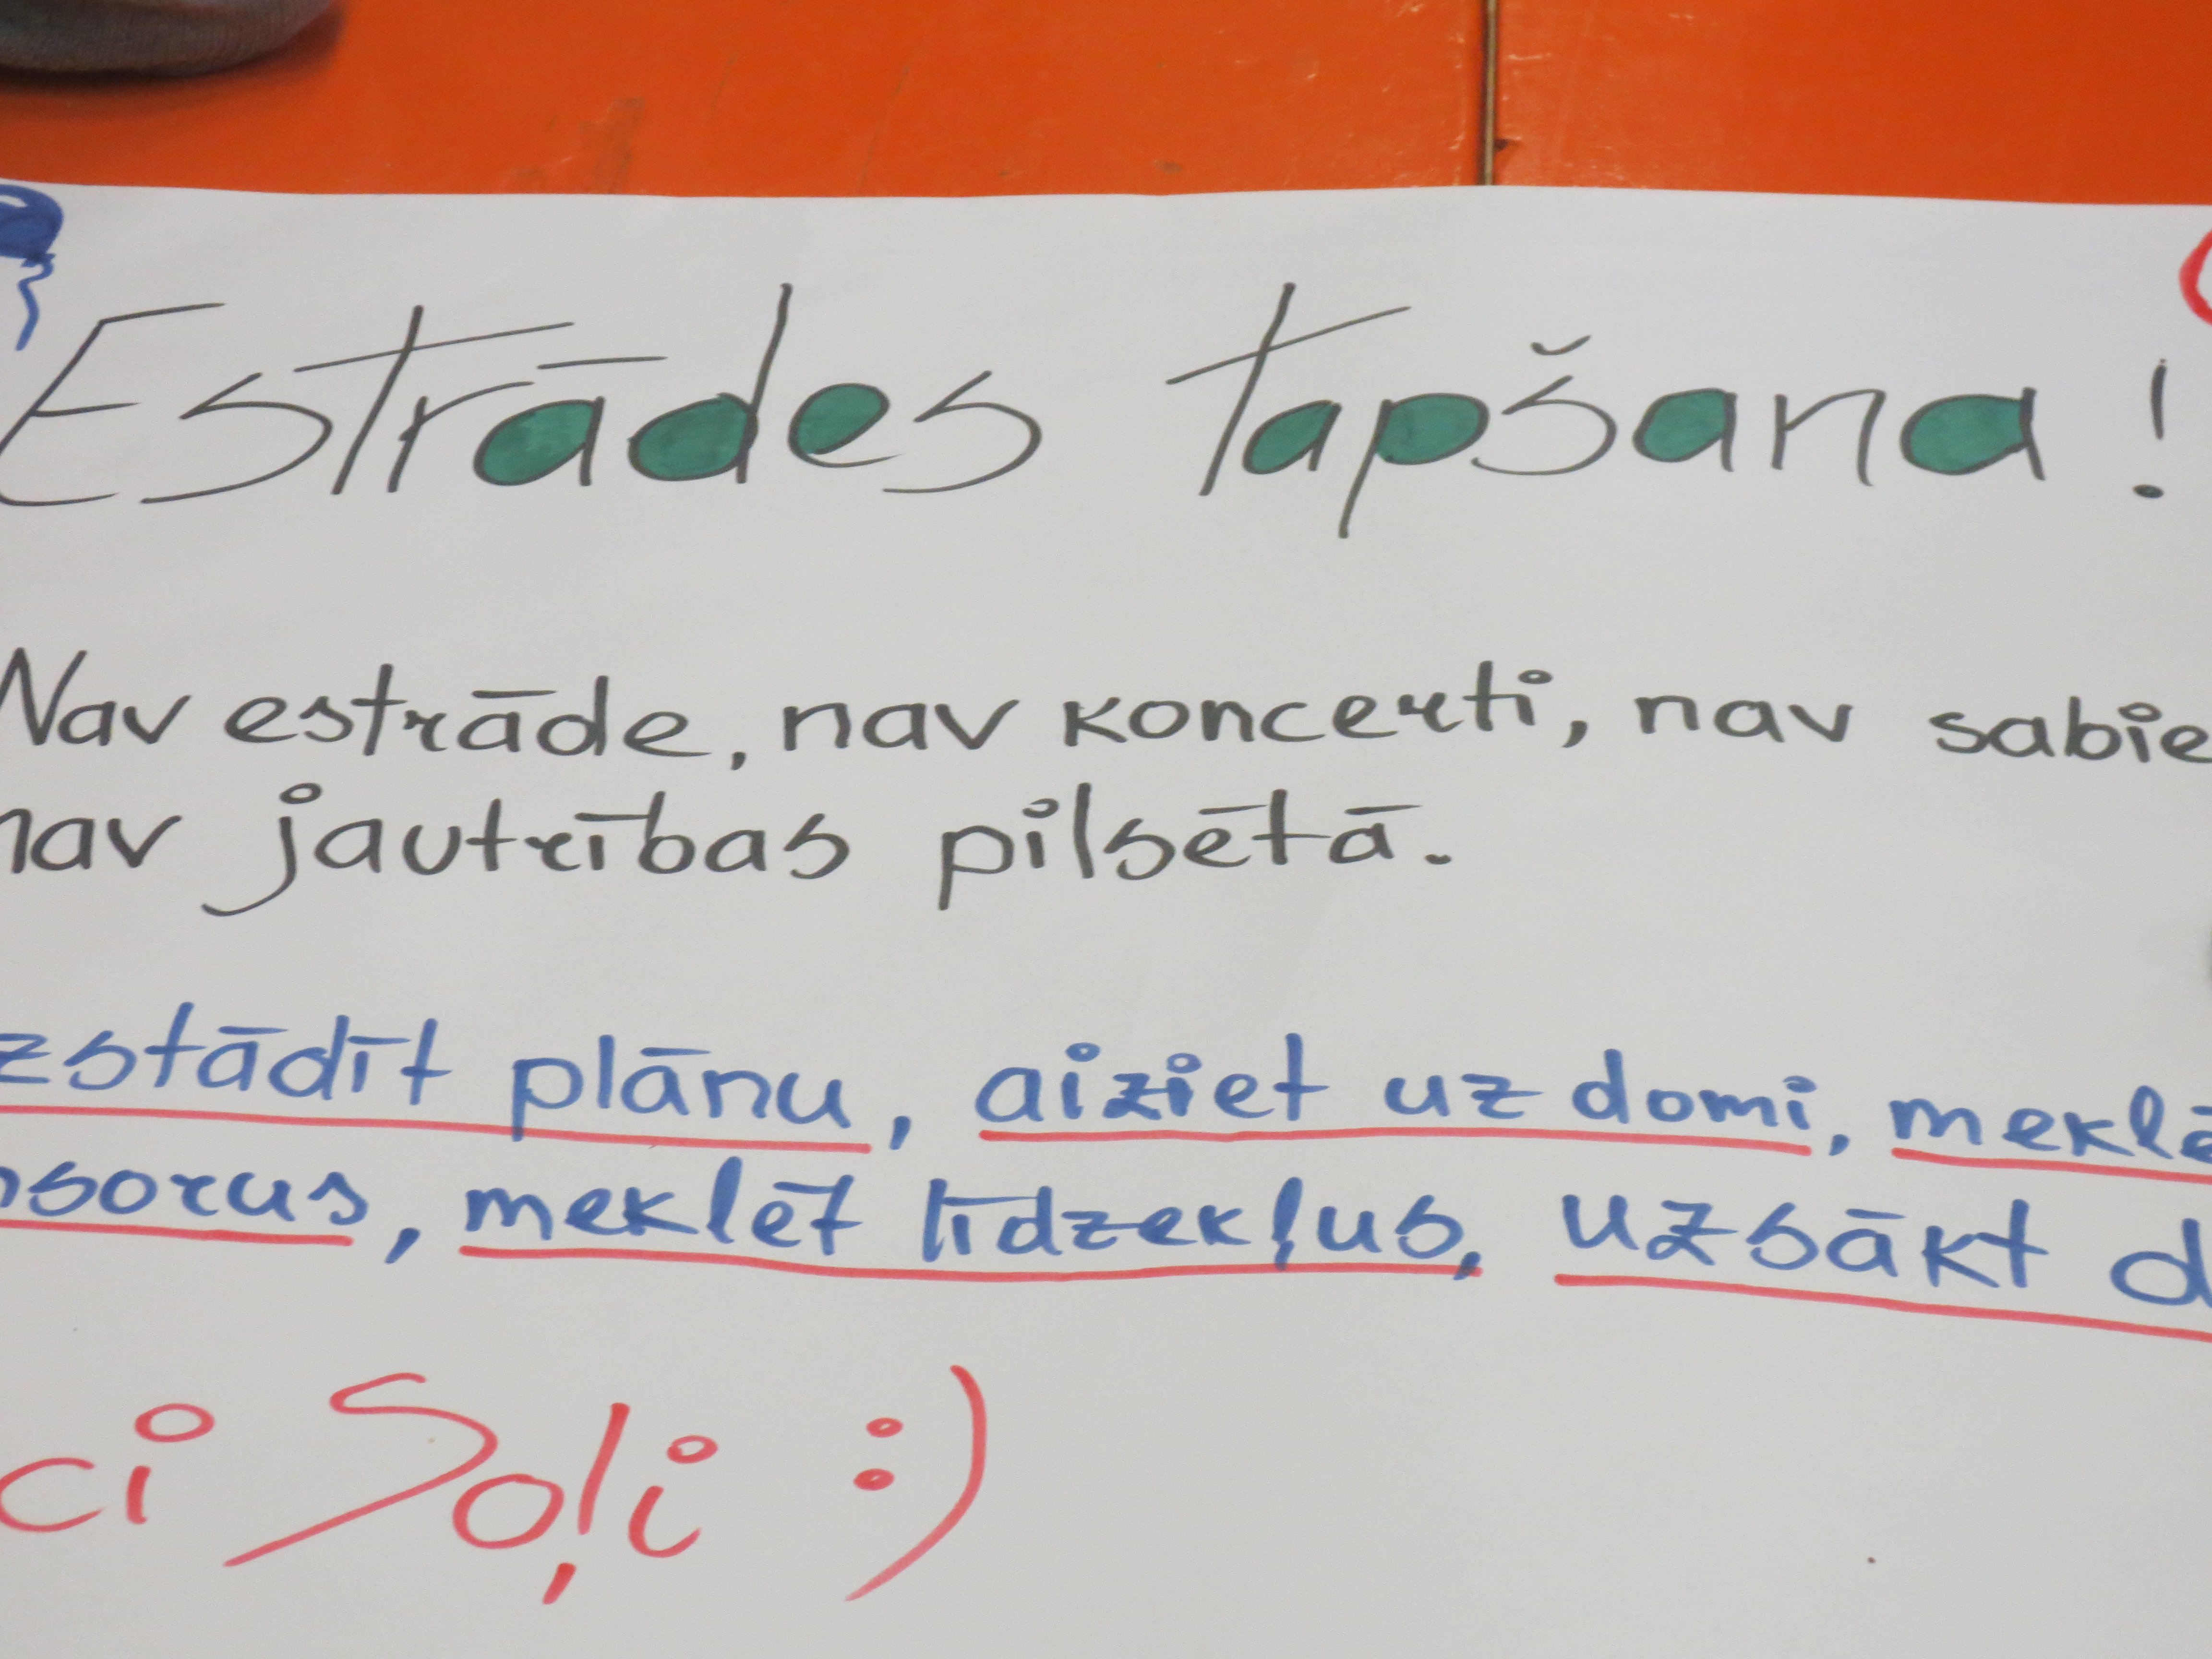 Estrādes tapšana!
Nav estrāde, nav koncerti, nav sabie
nav jautrības pilsētā.
zstādīt plānu, aiziet uz domi, meklē
nsorus, meklēt līdzekļus, uzsākt d
ci Soļi :)